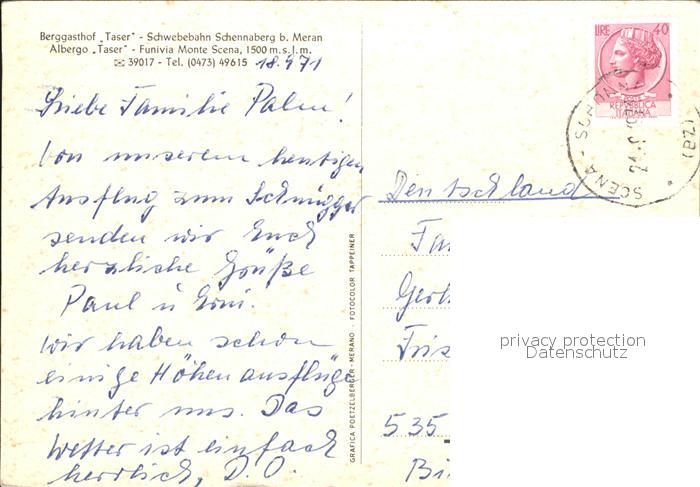 Berggasthof „Taser“ - Schwebebahn Schennaberg b. Meran
Albergo „Taser“ - Funivia Monte Scena, 1500 m.s.l.m.
✉ 39017 - Tel. (0473) 49615
Liebe Familie Palm!
Von unserem heutigen
Ausflug zum
senden wir Euch
herzliche Grüße
Paul u Erni.
Wir haben schon
einige Höhenausflüge
hinter uns. Das
Wetter ist einfach
herrlich, D. O.
GRAFICA POETZELBERGER - MERANO · FOTOCOLOR TAPPEINER
LIRE 40
REPUBBLICA
ITALIANA
SCENA - (BZ)
Deutschland
Fa
Ger
535
privacy protection
Datenschutz